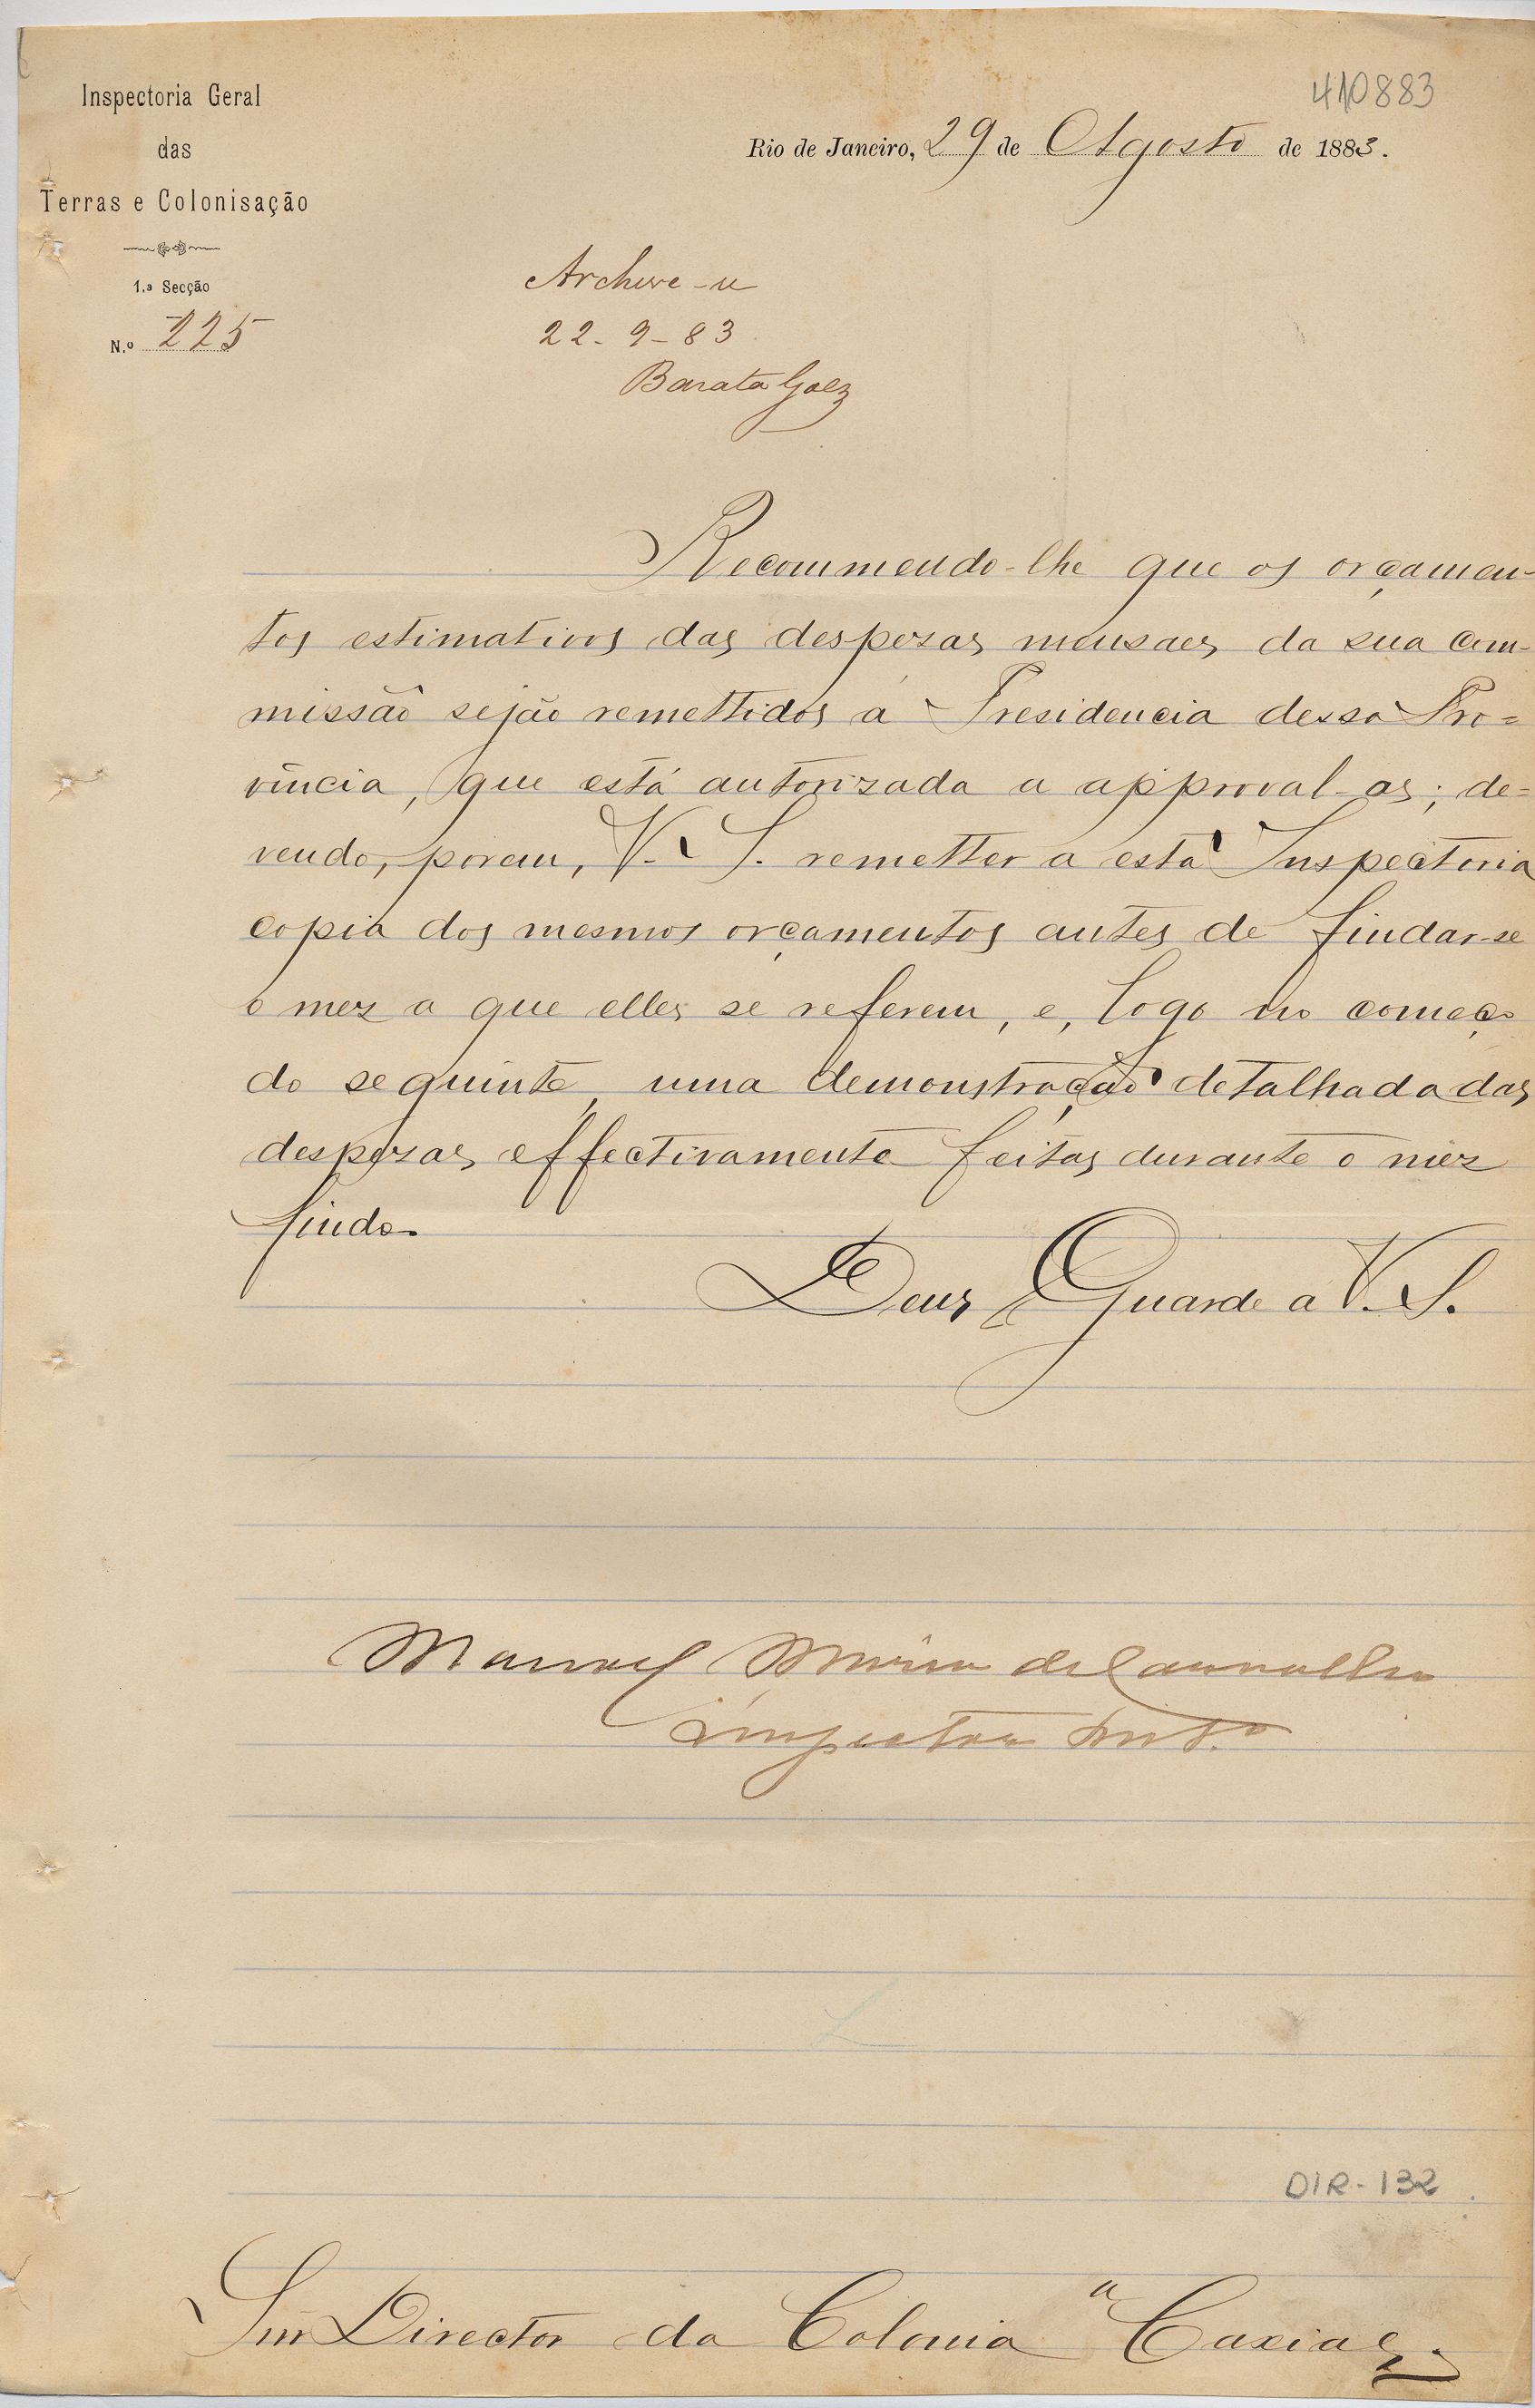 410883
Inspectoria Geral
das
Terras e Colonisação
1.a Secção
N.o 225
Rio de Janeiro, 29 de Agosto de 1883.
Archive-se
22-9-83
Barata Goez
Recommendo-lhe que os orçamen-
tos estimativos das despezas mensaes da sua com-
missão sejão remettidos á Presidencia dessa Pro=
vincia, que está autorizada a approval-as; de=
vendo, porem, V. S. remetter a esta Inspectoria
copia dos mesmos orçamentos antes de findar-se
o mez a que elles se referem, e, logo no começo
do seguinte, uma demonstração detalhada das
despezas effectivamente feitas durante o mez
findo.
Deus Guarde a V. S.
Manoel Maria de Carvalho
Inspector
DIR-132
Snr Director da Colonia "Caxias".